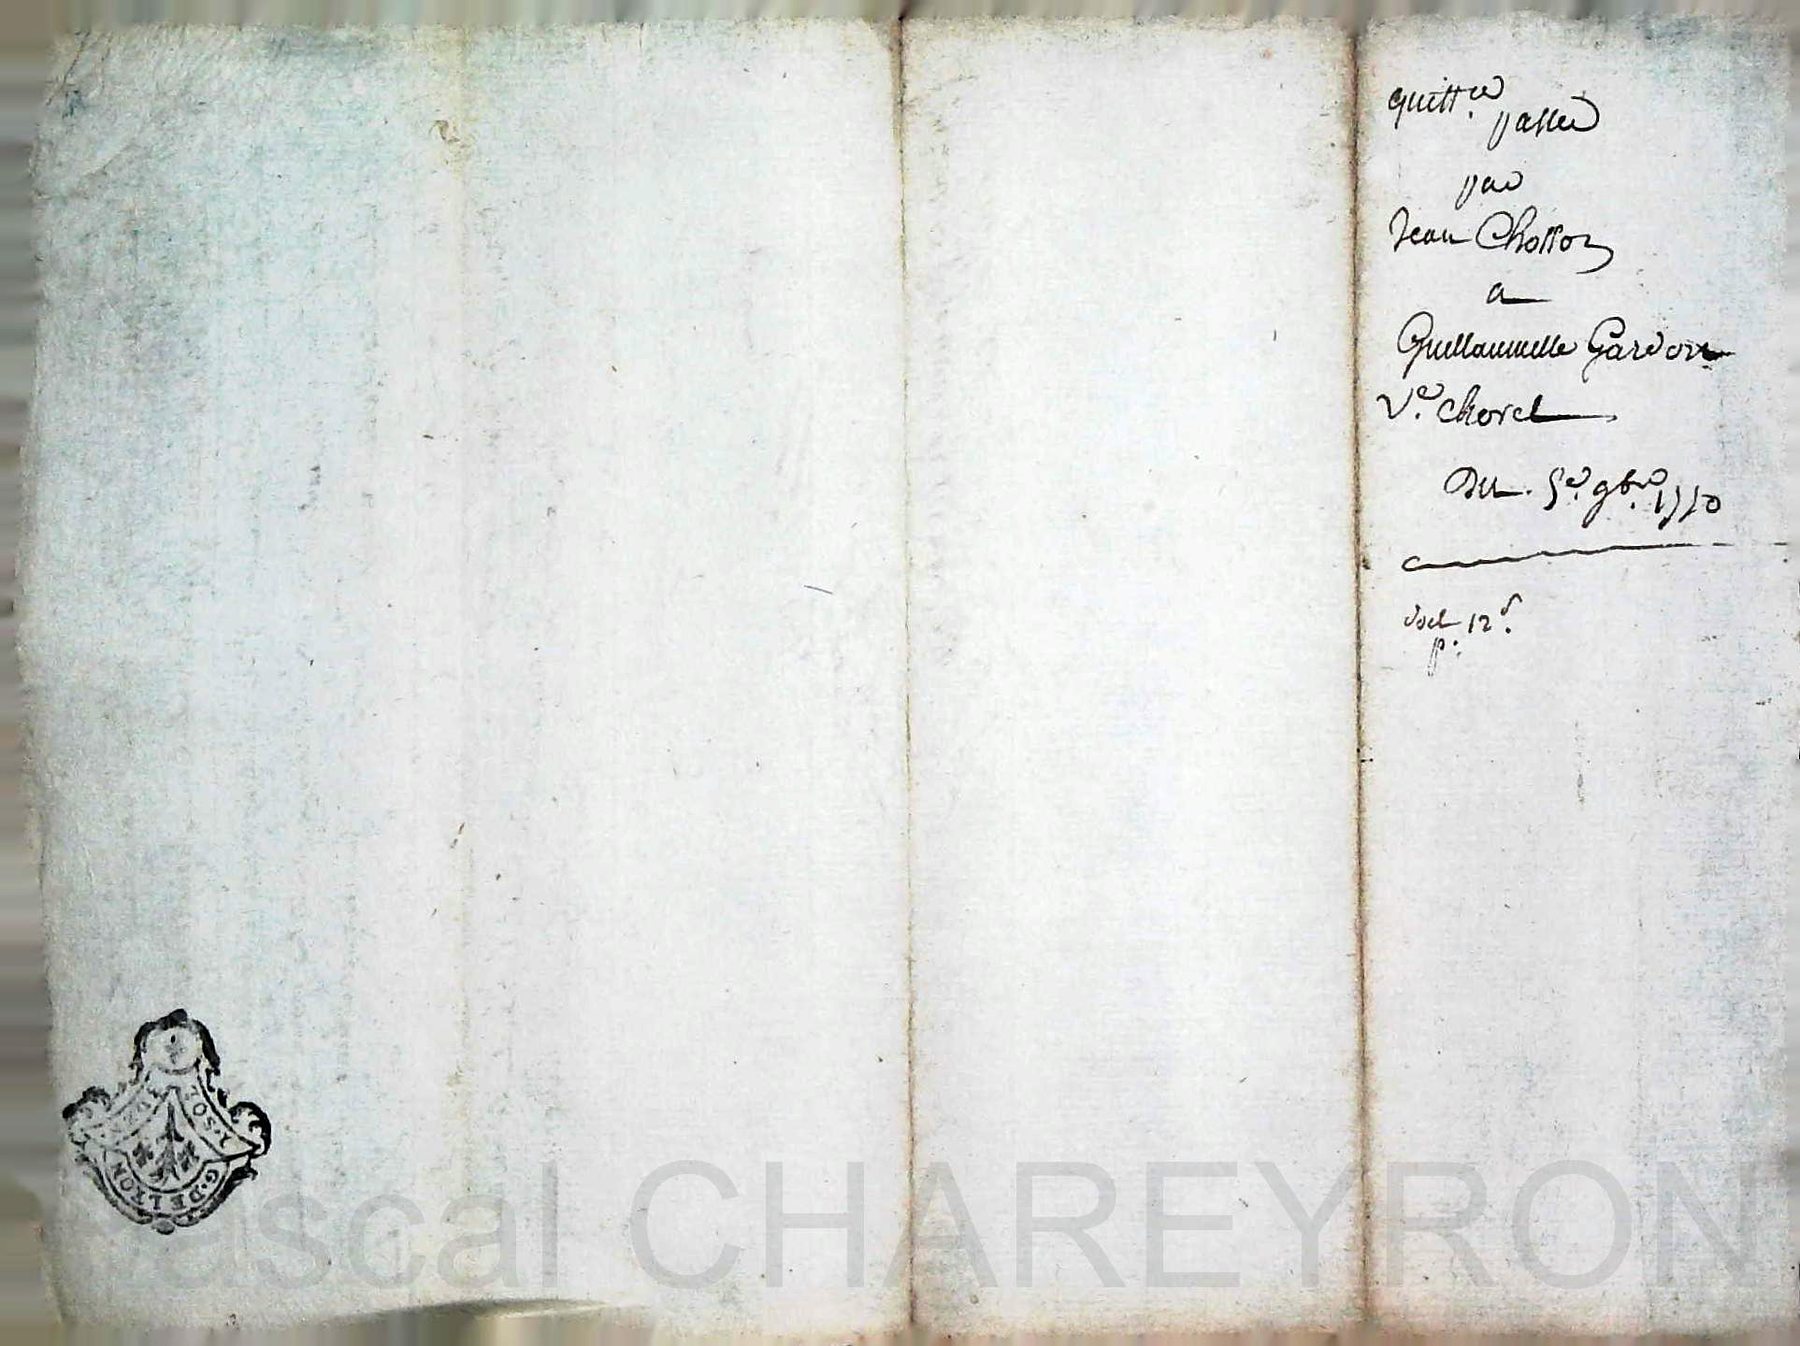 quitt.ce
passee
par
Jean Chosson
a
Guillaumette Gardon
Ve. chovel
Du. 5e. 9bre. 1770
p. 12s.
2. SOL
G. DE LYON
ascal CHAREYRON